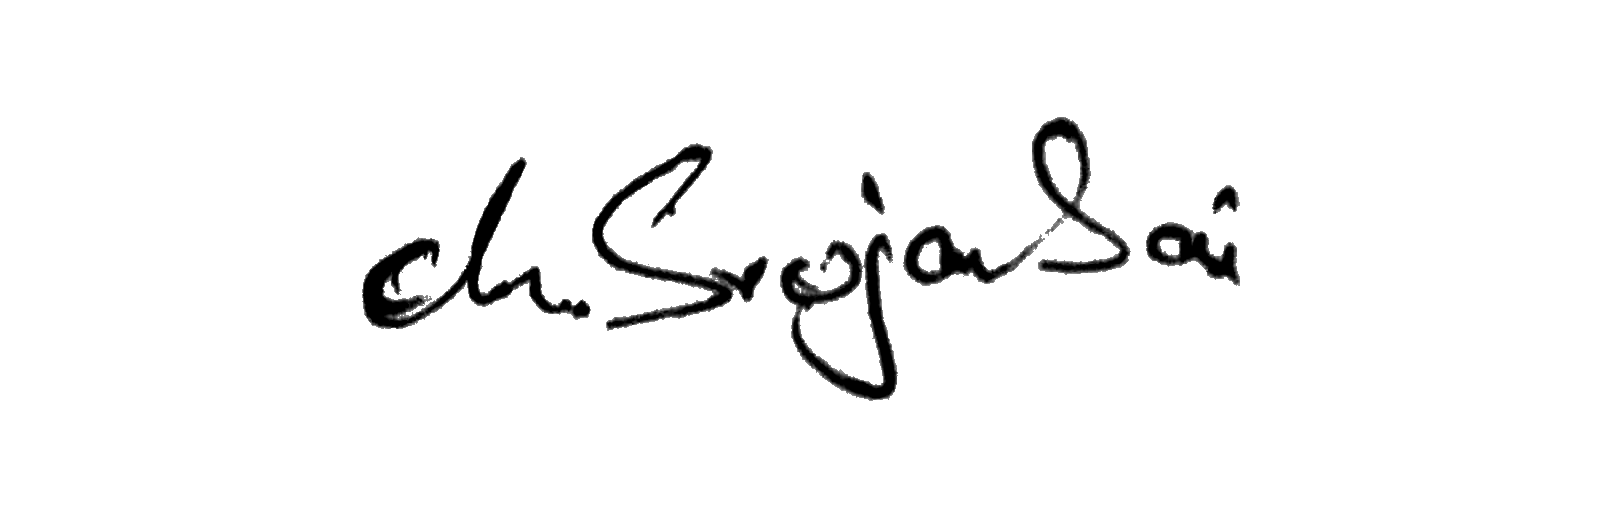 Ch. Srojan Sai